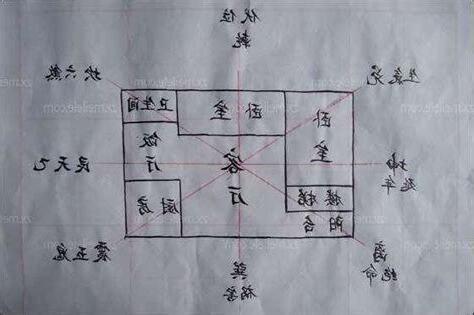 伏位
乾
兑生气
坎六煞
卧室
卧室
卫生间
饭厅
客厅
坤
延年
艮天乙
楼梯
厨房
阳台
离
绝命
巽
祸害
震五鬼